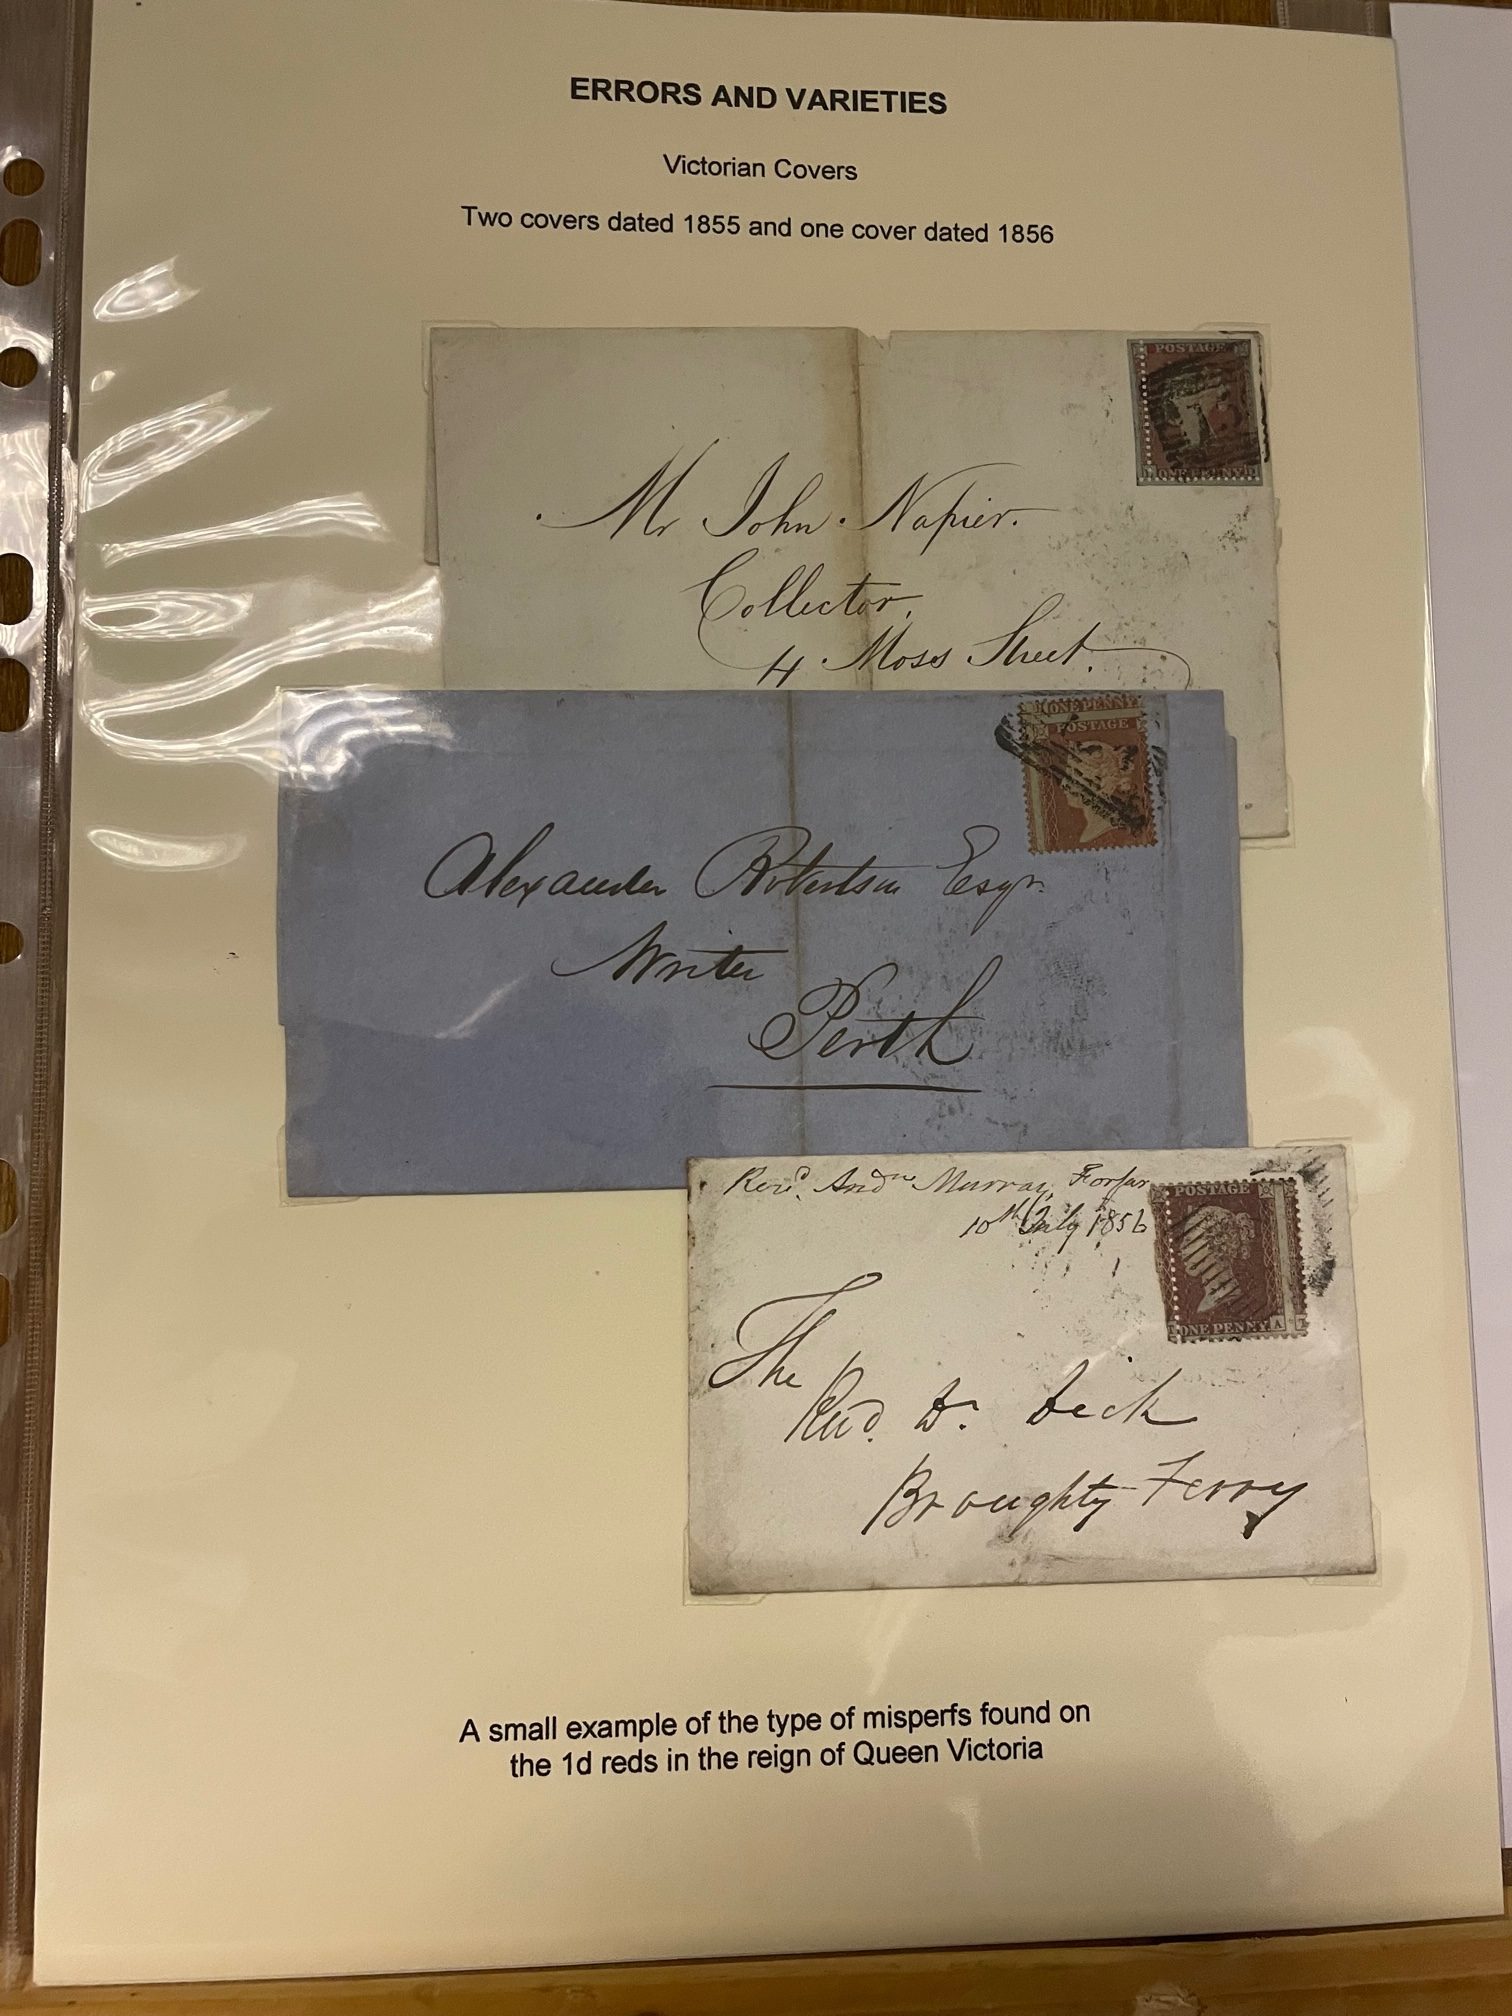 ERRORS AND VARIETIES
Victorian Covers
Two covers dated 1855 and one cover dated 1856
POSTAGE
ONE PENNY
Mr John Napier.
Collector,
4 Moss Street.
ONE PENNY
POSTAGE
Alexander Robertson Esqr.
Writer
Perth
Revd. Andw Murray, Forfar
10th July 1856
POSTAGE
ONE PENNY A
The
Revd. Dr. Dick
Broughty Ferry
A small example of the type of misperfs found on
the 1d reds in the reign of Queen Victoria